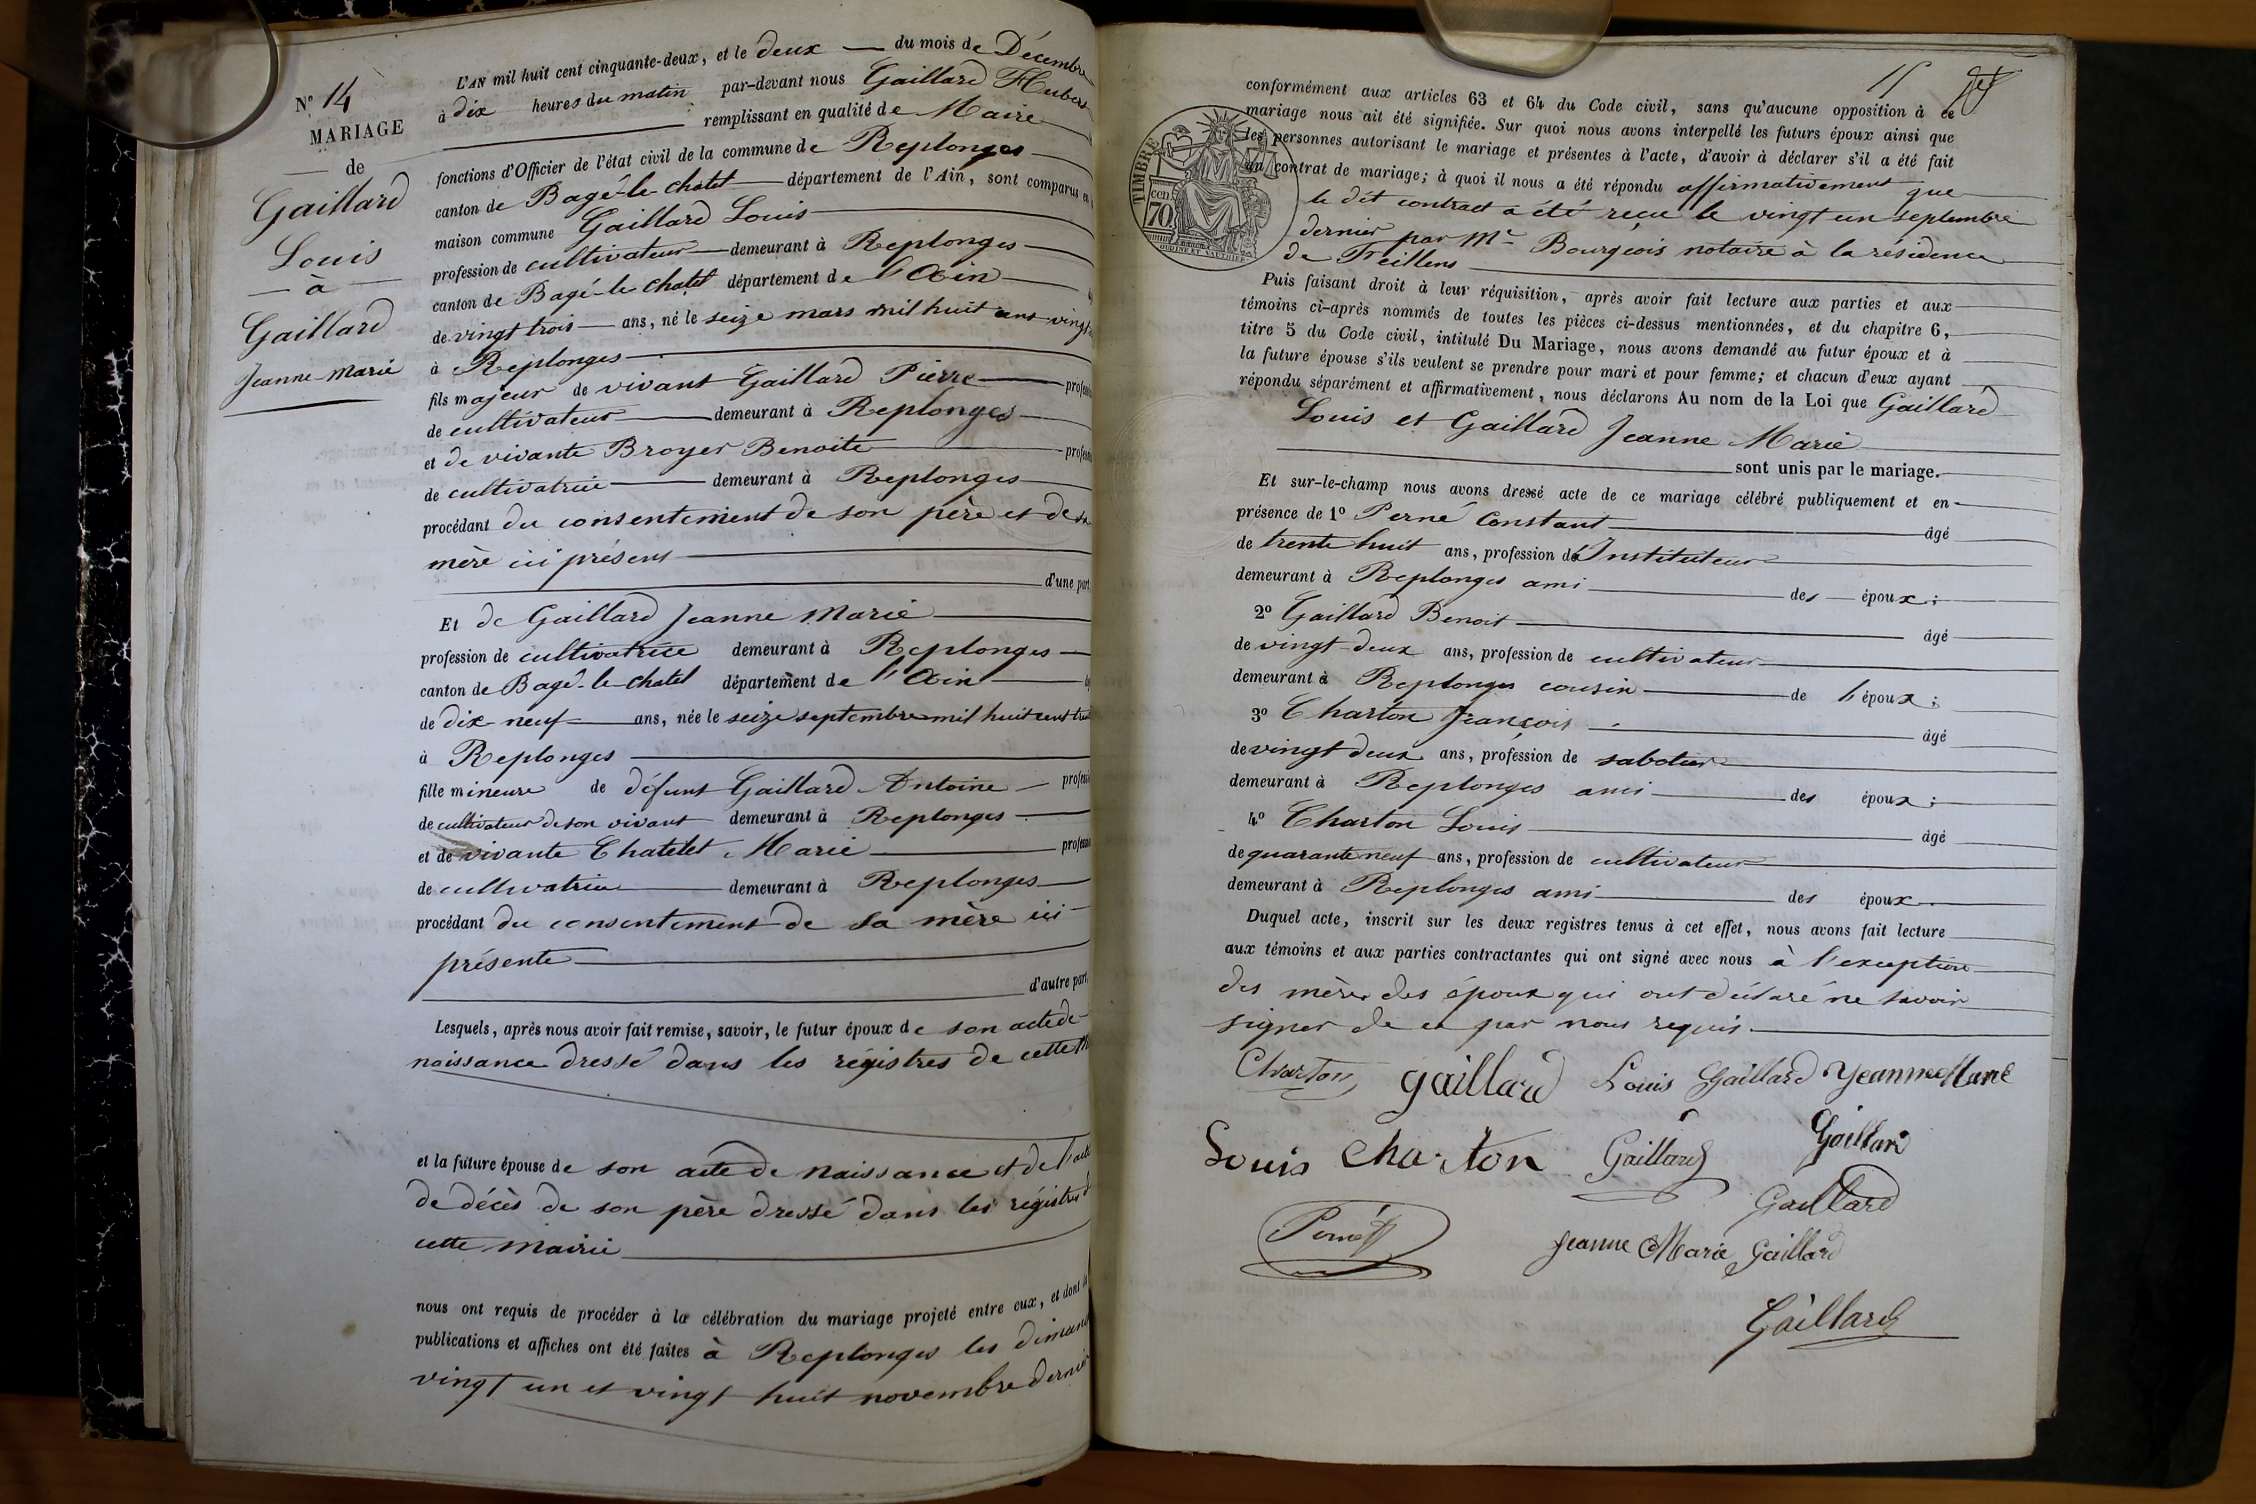 N° 14
MARIAGE
de
Gaillard
Louis
à
Gaillard
Jeanne Marie
L'AN mil huit cent cinquante-deux, et le deux du mois de Décembre
à dix heures du matin par-devant nous Gaillard Hubert
remplissant en qualité de Maire
fonctions d'Officier de l'état civil de la commune de Replonges
canton de Bagé-le-chatel département de l'Ain, sont comparus en
maison commune Gaillard Louis
profession de cultivateur demeurant à Replonges
canton de Bagé-le-chatel département de l'Ain
de vingt trois ans, né le seize mars mil huit cent vingt
à Replonges
fils majeur de vivant Gaillard Pierre
de cultivateur demeurant à Replonges
et de vivante Broyer Benoite
de cultivatrice demeurant à Replonges
procédant du consentement de son père et de sa
mère ici présent
d'une part
Et de Gaillard Jeanne Marie
profession de cultivatrice demeurant à Replonges
canton de Bagé-le-chatel département de l'Ain
de dix-neuf ans, née le seize septembre mil huit cent
à Replonges
fille mineure de défunt Gaillard Antoine
de cultivateur de son vivant demeurant à Replonges
et de vivante Chatelet Marie
de cultivatrice demeurant à Replonges
procédant du consentement de sa mère ici
présente
d'autre part.
Lesquels, après nous avoir fait remise, savoir, le futur époux de son acte de
naissance dressé dans les régistres de cette
et la future épouse de son acte de naissance et de l'acte
de décès de son père dressé dans les régistres
cette mairie
nous ont requis de procéder à la célébration du mariage projeté entre eux, et dont
publications et affiches ont été faites à Replonges les
vingt un et vingt huit novembre dernier
15
conformément aux articles 63 et 64 du Code civil, sans qu'aucune opposition à ce
mariage nous ait été signifiée. Sur quoi nous avons interpellé les futurs époux ainsi que
les personnes autorisant le mariage et présentes à l'acte, d'avoir à déclarer s'il a été fait
un contrat de mariage; à quoi il nous a été répondu affirmativement que
le dit contract a été reçu le vingt un septembre
dernier par Mr Bourgeois notaire à la résidence
de Feillens
TIMBRE
cen.
70.
Puis faisant droit à leur réquisition, après avoir fait lecture aux parties et aux
témoins ci-après nommés de toutes les pièces ci-dessus mentionnées, et du chapitre 6,
titre 5 du Code civil, intitulé Du Mariage, nous avons demandé au futur époux et à
la future épouse s'ils veulent se prendre pour mari et pour femme; et chacun d'eux ayant
répondu séparément et affirmativement, nous déclarons Au nom de la Loi que Gaillard
Louis et Gaillard Jeanne Marie
sont unis par le mariage.
Et sur-le-champ nous avons dressé acte de ce mariage célébré publiquement et en
présence de 1° Perné Constant âgé
de trente huit ans, profession de Instituteur
demeurant à Replonges ami des époux;
2° Gaillard Benoit âgé
de vingt-deux ans, profession de cultivateur
demeurant à Replonges cousin de l'époux;
3° Charton François âgé
de vingt deux ans, profession de sabotier
demeurant à Replonges ami des époux;
4° Charton Louis âgé
de quarante neuf ans, profession de cultivateur
demeurant à Replonges ami des époux.
Duquel acte, inscrit sur les deux registres tenus à cet effet, nous avons fait lecture
aux témoins et aux parties contractantes qui ont signé avec nous à l'exception
des mères des époux qui ont déclaré ne savoir
signer de ce par nous requis.
Charton gaillard Louis Gaillard Jeanne Marie
Louis Charton Gaillard Gaillard
Gaillard
Perné
Jeanne Marie Gaillard
Gaillard